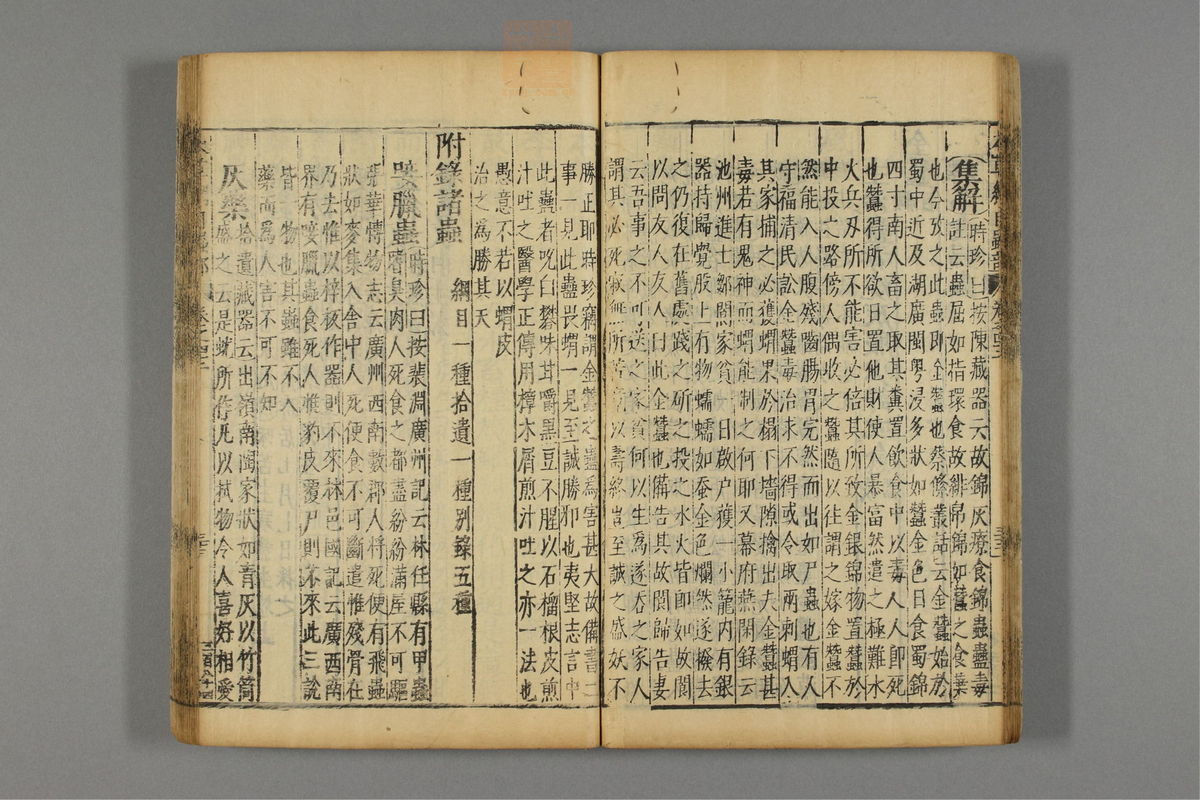 集解時珍曰按陳藏器云故錦灰療食錦蟲蠱毒
註云蟲屈如指環食故緋帛錦如蠶之食葉
也今攷之此蟲即金蠶也蔡絛叢話云金蠶始於
蜀中近及湖廣閩粵浸多狀如蠶金色日食蜀錦
四寸南人畜之取其糞置飲食中以毒人人即死
也蠶得所欲日置他財使人暴富然遣之極難水
火兵刃所不能害必倍其所致金銀錦物置蠶於
中投之路傍人偶收之蠶隨以往謂之嫁金蠶不
然能入人腹殘嚙腸胃完然而出如尸蟲也有人
守福清民訟金蠶毒治求不得或令取兩刺蝟入
其家捕之必獲蝟果於榻下墻隙擒出夫金蠶甚
毒若有鬼神而蝟能制之何耶又幕府燕閑錄云
池州進士鄒閬家貧一日啟户獲一小籠內有銀
器持歸覺股上有物蠕蠕如蚕金色爛然遂撥去
之仍復在舊處踐之斫之投之水火皆即如故閬
以問友人友人曰此金蠶也備告其故閬歸告妻
云吾事之不可送之家貧何以生為遂吞之家人
謂其必死寂無所苦竟以壽終豈至誠之盛妖不
勝正耶時珍竊謂金蠶之蠱為害甚大故備書二
事一見此蠱畏蝟一見至誠勝邪也夷堅志言中
此蠱者吮白礬味甘嚼黑豆不腥以石榴根皮煎
汁吐之醫學正傳用樟木屑煎汁吐之亦一法也
愚意不若以蝟皮
治之為勝其天
附錄諸蟲　綱目一種拾遺一種別錄五種
唼臘蟲時珍曰按裴淵廣州記云林任縣有甲蟲
嗜臭肉人死食之都盡紛紛滿屋不可驅
張華博物志云廣州西南數郡人將死便有飛蟲
狀如麥集入舍中人死便食不可斷遣惟殘骨在
乃去惟以梓板作器則不來林邑國記云廣西南
界有唼臘蟲食死人惟豹皮覆尸則不來此三說
皆一物也其蟲雖不入
藥而為人害不可不知
灰藥拾遺藏器云出嶺南陶家狀如青灰以竹筒
盛之云是蛕所作凡以拭物令人喜好相愛